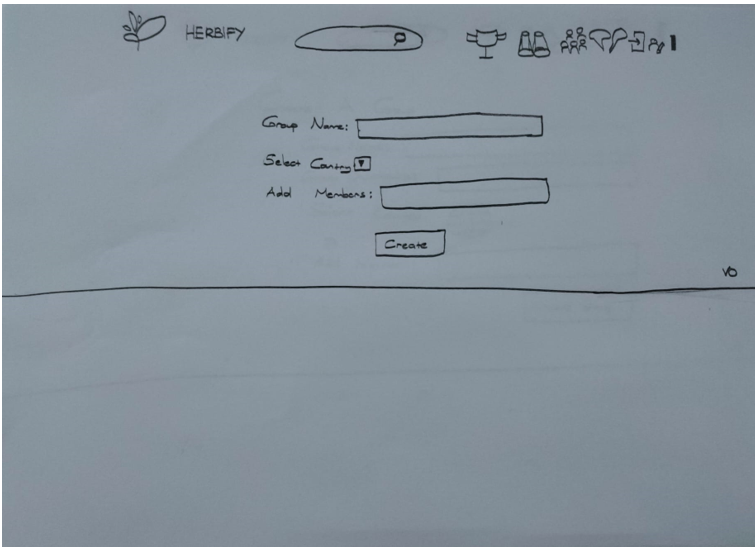 HERBIFY
Group Name:
Select Country
Add Members:
Create